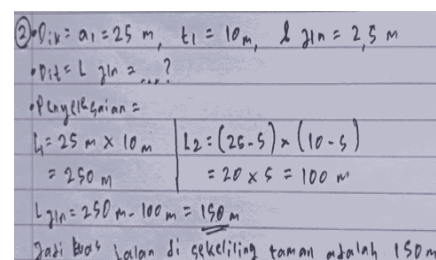 ② • Dik = a1 = 25 m, t1 = 10m, l jln = 2,5 m
• Dit = L jln = ...?
• Penyelesaian =
L1 = 25 m x 10 m
= 250 m
L2 = (25-5) x (10-5)
= 20 x 5 = 100 m
L jln = 250 m - 100 m = 150 m
Jadi luas jalan di sekeliling taman adalah 150 m